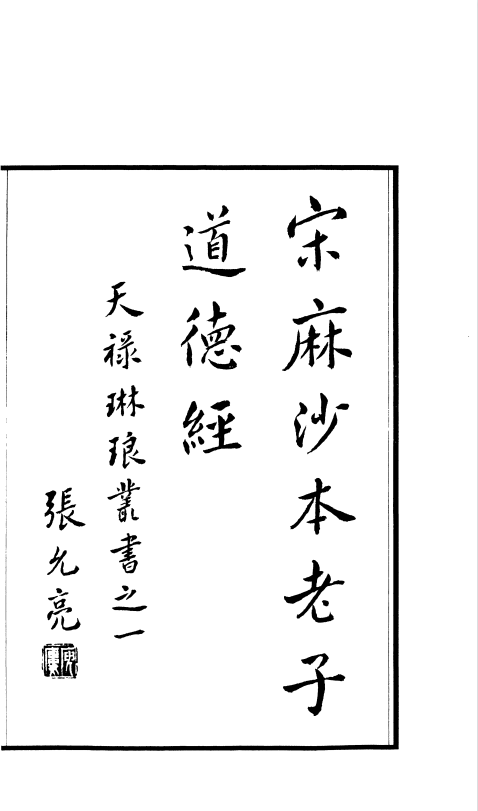 宋麻沙本老子
道德經
天禄琳琅叢書之一
張允亮